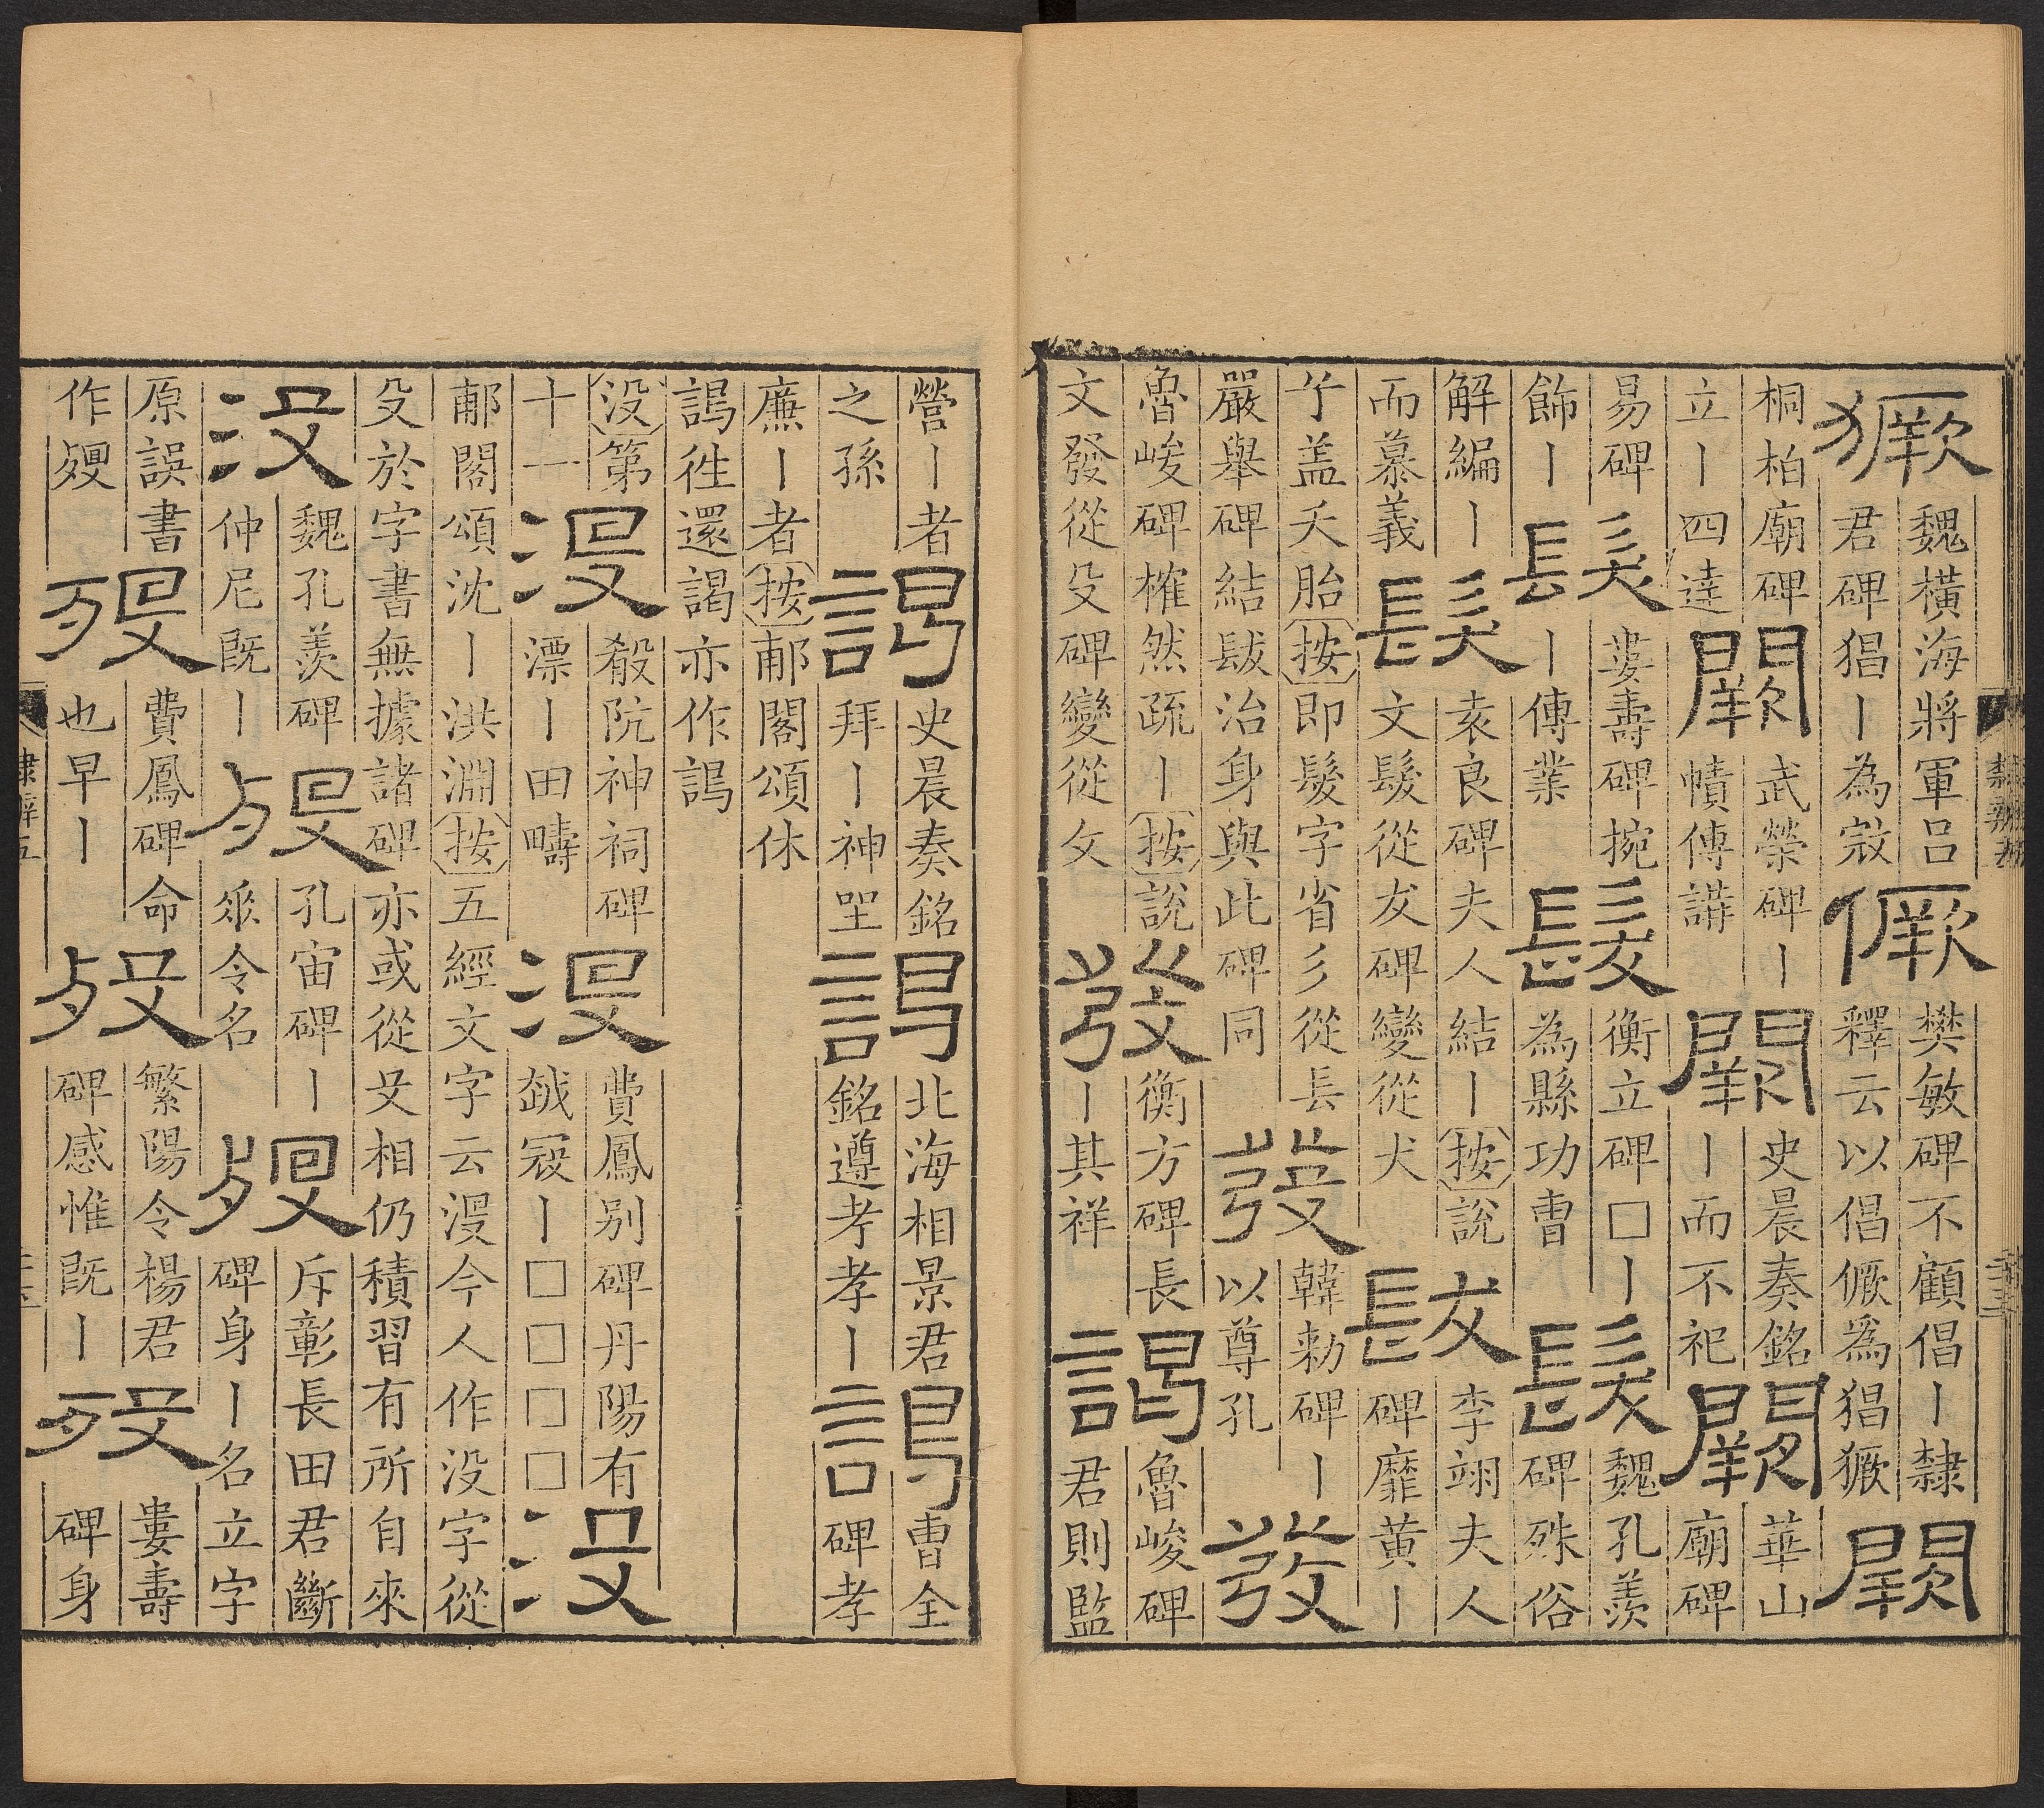 獗魏橫海將軍呂君碑猖丨為㓂𠎮樊敏碑不顧倡丨隸釋云以倡𠎮爲猖獗闕
桐柏廟碑立丨四達闕武榮碑丨幘傳講闕史晨奏銘丨而不祀闕華山廟碑
易碑飾丨髮婁壽碑捥丨傅業髮衡立碑□丨為縣功曹髮魏孔羨碑殊俗
解編丨而慕義髮袁良碑夫人結丨按説文髮從犮碑變從犬髮李翊夫人碑靡黃丨
亍盖夭胎按即髮字省彡從镸嚴舉碑結镸犮治身與此碑同發韓勑碑丨以尊孔發
魯峻碑榷然疏丨按説文發從殳碑變從攵發衡方碑長丨其祥謁魯峻碑君則監
隸辨五
營丨者之孫謁史晨奏銘拜丨神坐謁北海相景君銘遵孝孝丨謁曹全碑孝
廉丨者按郙閣頌休謁徃還謁亦作謁
没第十一沒殽阬神祠碑漂丨田疇沒費鳳别碑丹陽有越㓂丨□□□□沒
郙閣頌沈丨洪淵按五經文字云沒今人作没字從殳於字書無據諸碑亦或從殳相仍積習有所自來
沒魏孔羨碑仲尼既丨歿孔宙碑丨㒸令名歿斥彰長田君斷碑身丨名立字
原誤書作歿歿費鳳碑命也早丨歿繁陽令楊君碑感惟既丨歿婁壽碑身
隸辨五